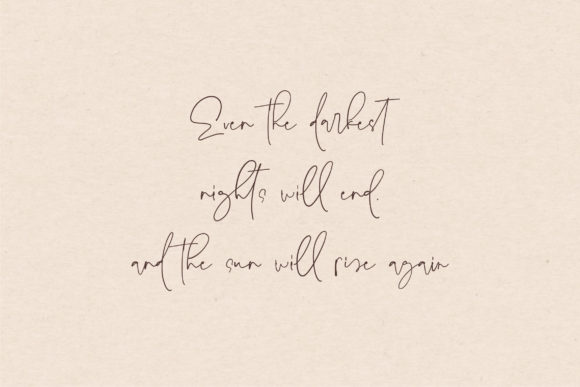 Even the darkest
nights will end.
and the sun will rise again